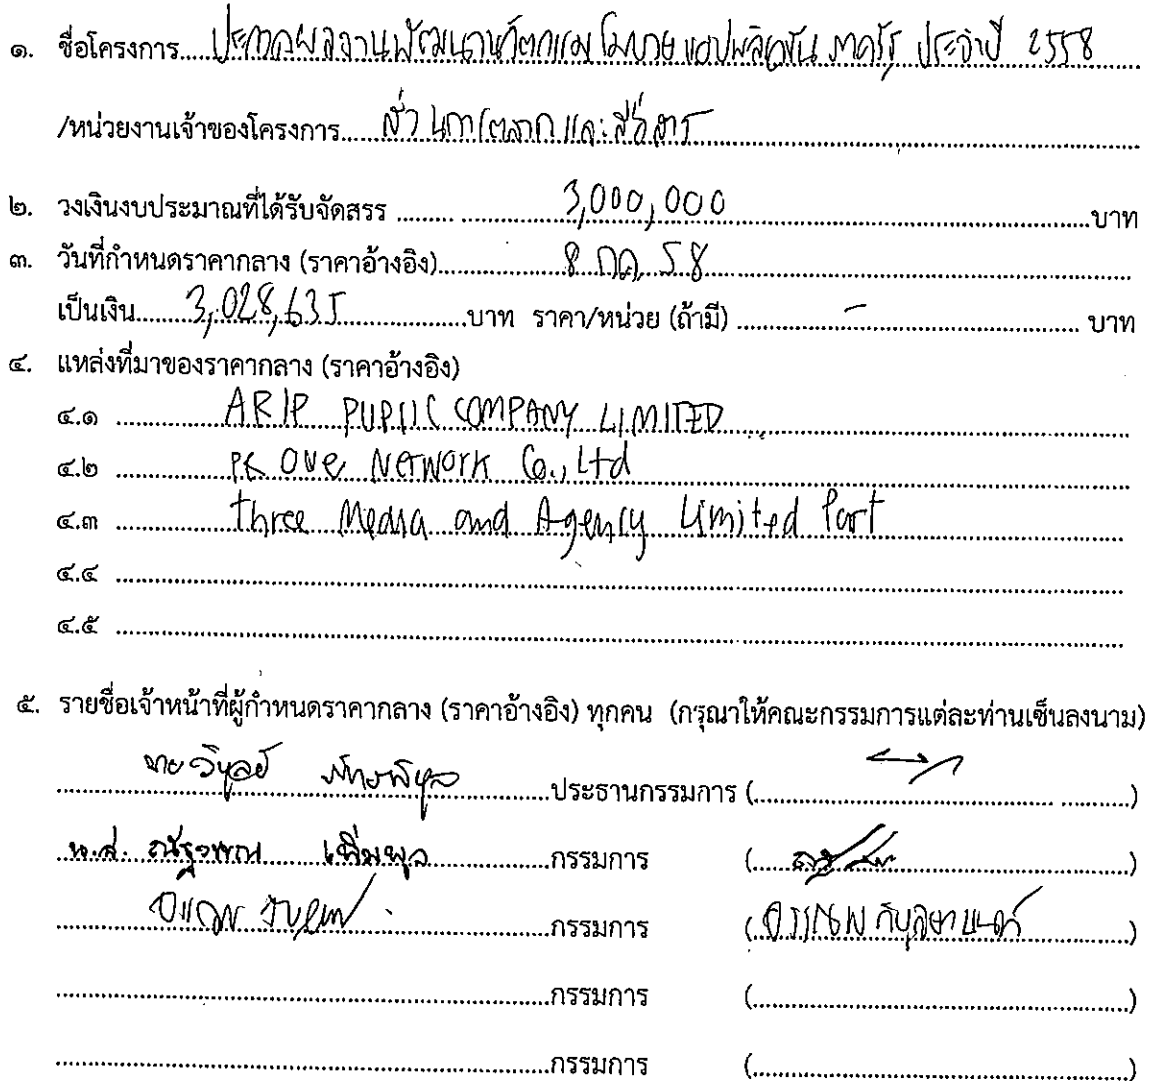 ๑. ชื่อโครงการ.....ประกวดผลงานพัฒนานวัตกรรม โมบาย แอปพลิเคชัน ภาครัฐ ประจำปี 2558
/หน่วยงานเจ้าของโครงการ.....ส่วนการตลาดและสื่อสาร
๒. วงเงินงบประมาณที่ได้รับจัดสรร ......... 3,000,000 บาท
๓. วันที่กำหนดราคากลาง (ราคาอ้างอิง) 8 กค. 58
เป็นเงิน 3,028,635 บาท ราคา/หน่วย (ถ้ามี) - บาท
๔. แหล่งที่มาของราคากลาง (ราคาอ้างอิง)
๔.๑ ARIP PUPLIC COMPANY LIMITED
๔.๒ PR One Network Co., Ltd
๔.๓ three Media and Agency Limited Part
๔.๔
๔.๕
๕. รายชื่อเจ้าหน้าที่ผู้กำหนดราคากลาง (ราคาอ้างอิง) ทุกคน (กรุณาให้คณะกรรมการแต่ละท่านเซ็นลงนาม)
นาย วิบูลย์ ประธานกรรมการ (..........)
น.ส. เพิ่มพูล กรรมการ (..........)
กรรมการ (..........)
กรรมการ (..........)
กรรมการ (..........)